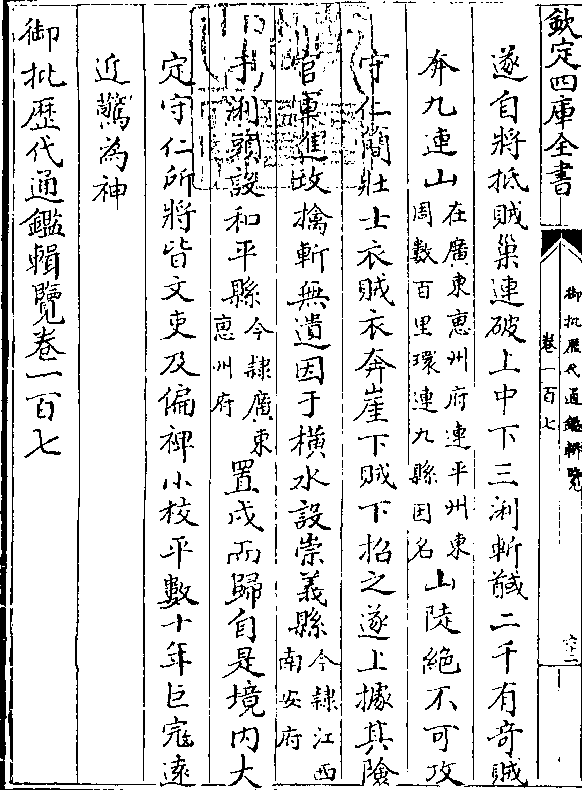 欽定四庫全書
御批歷代通鑑輯覽
卷一百七
六十二
遂自將抵賊巢連破上中下三浰斬馘二千有奇賊
奔九連山在廣東惠州府連平州東周數百里環連九縣因名山陡絶不可攻
守仁簡壯士衣賊衣奔崖下賊下招之遂上據其險
官軍進攻擒斬無遺因于横水設崇義縣今隸江西南安府
于浰頭設和平縣今隸廣東惠州府置戍而歸自是境内大
定守仁所將皆文吏及偏裨小校平數十年巨寇遠
近驚為神
御批歷代通鑑輯覽卷一百七